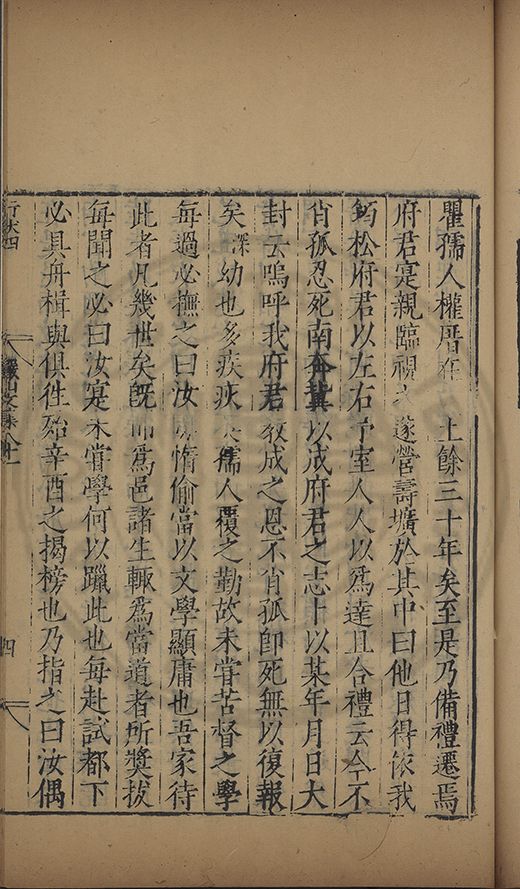 瞿孺人權厝在土餘三十年矣至是乃備禮遷焉
府君寔親臨視遂營壽壙於其中曰他日得依我
鈞松府君以左右予室人人以為達且合禮云今不
肖孤忍死南奔冀以成府君之志卜以某年月日大
封云嗚呼我府君教成之恩不肖孤即死無以復報
矣深幼也多疾疢孺人覆之勤故未嘗苦督之學
每過必撫之曰汝惰偷當以文學顯庸也吾家待
此者凡幾世矣既而為邑諸生輒為當道者所獎拔
每聞之必曰汝寔未嘗學何以躐此也每赴試都下
必具舟楫與俱徃殆辛酉之揭榜也乃指之曰汝偶
行狀四
文集
四